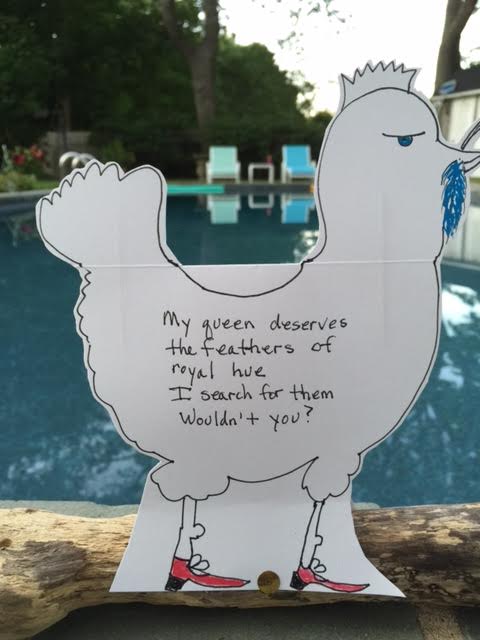 My queen deserves
the feathers of
royal hue
I search for them
Wouldn't you?